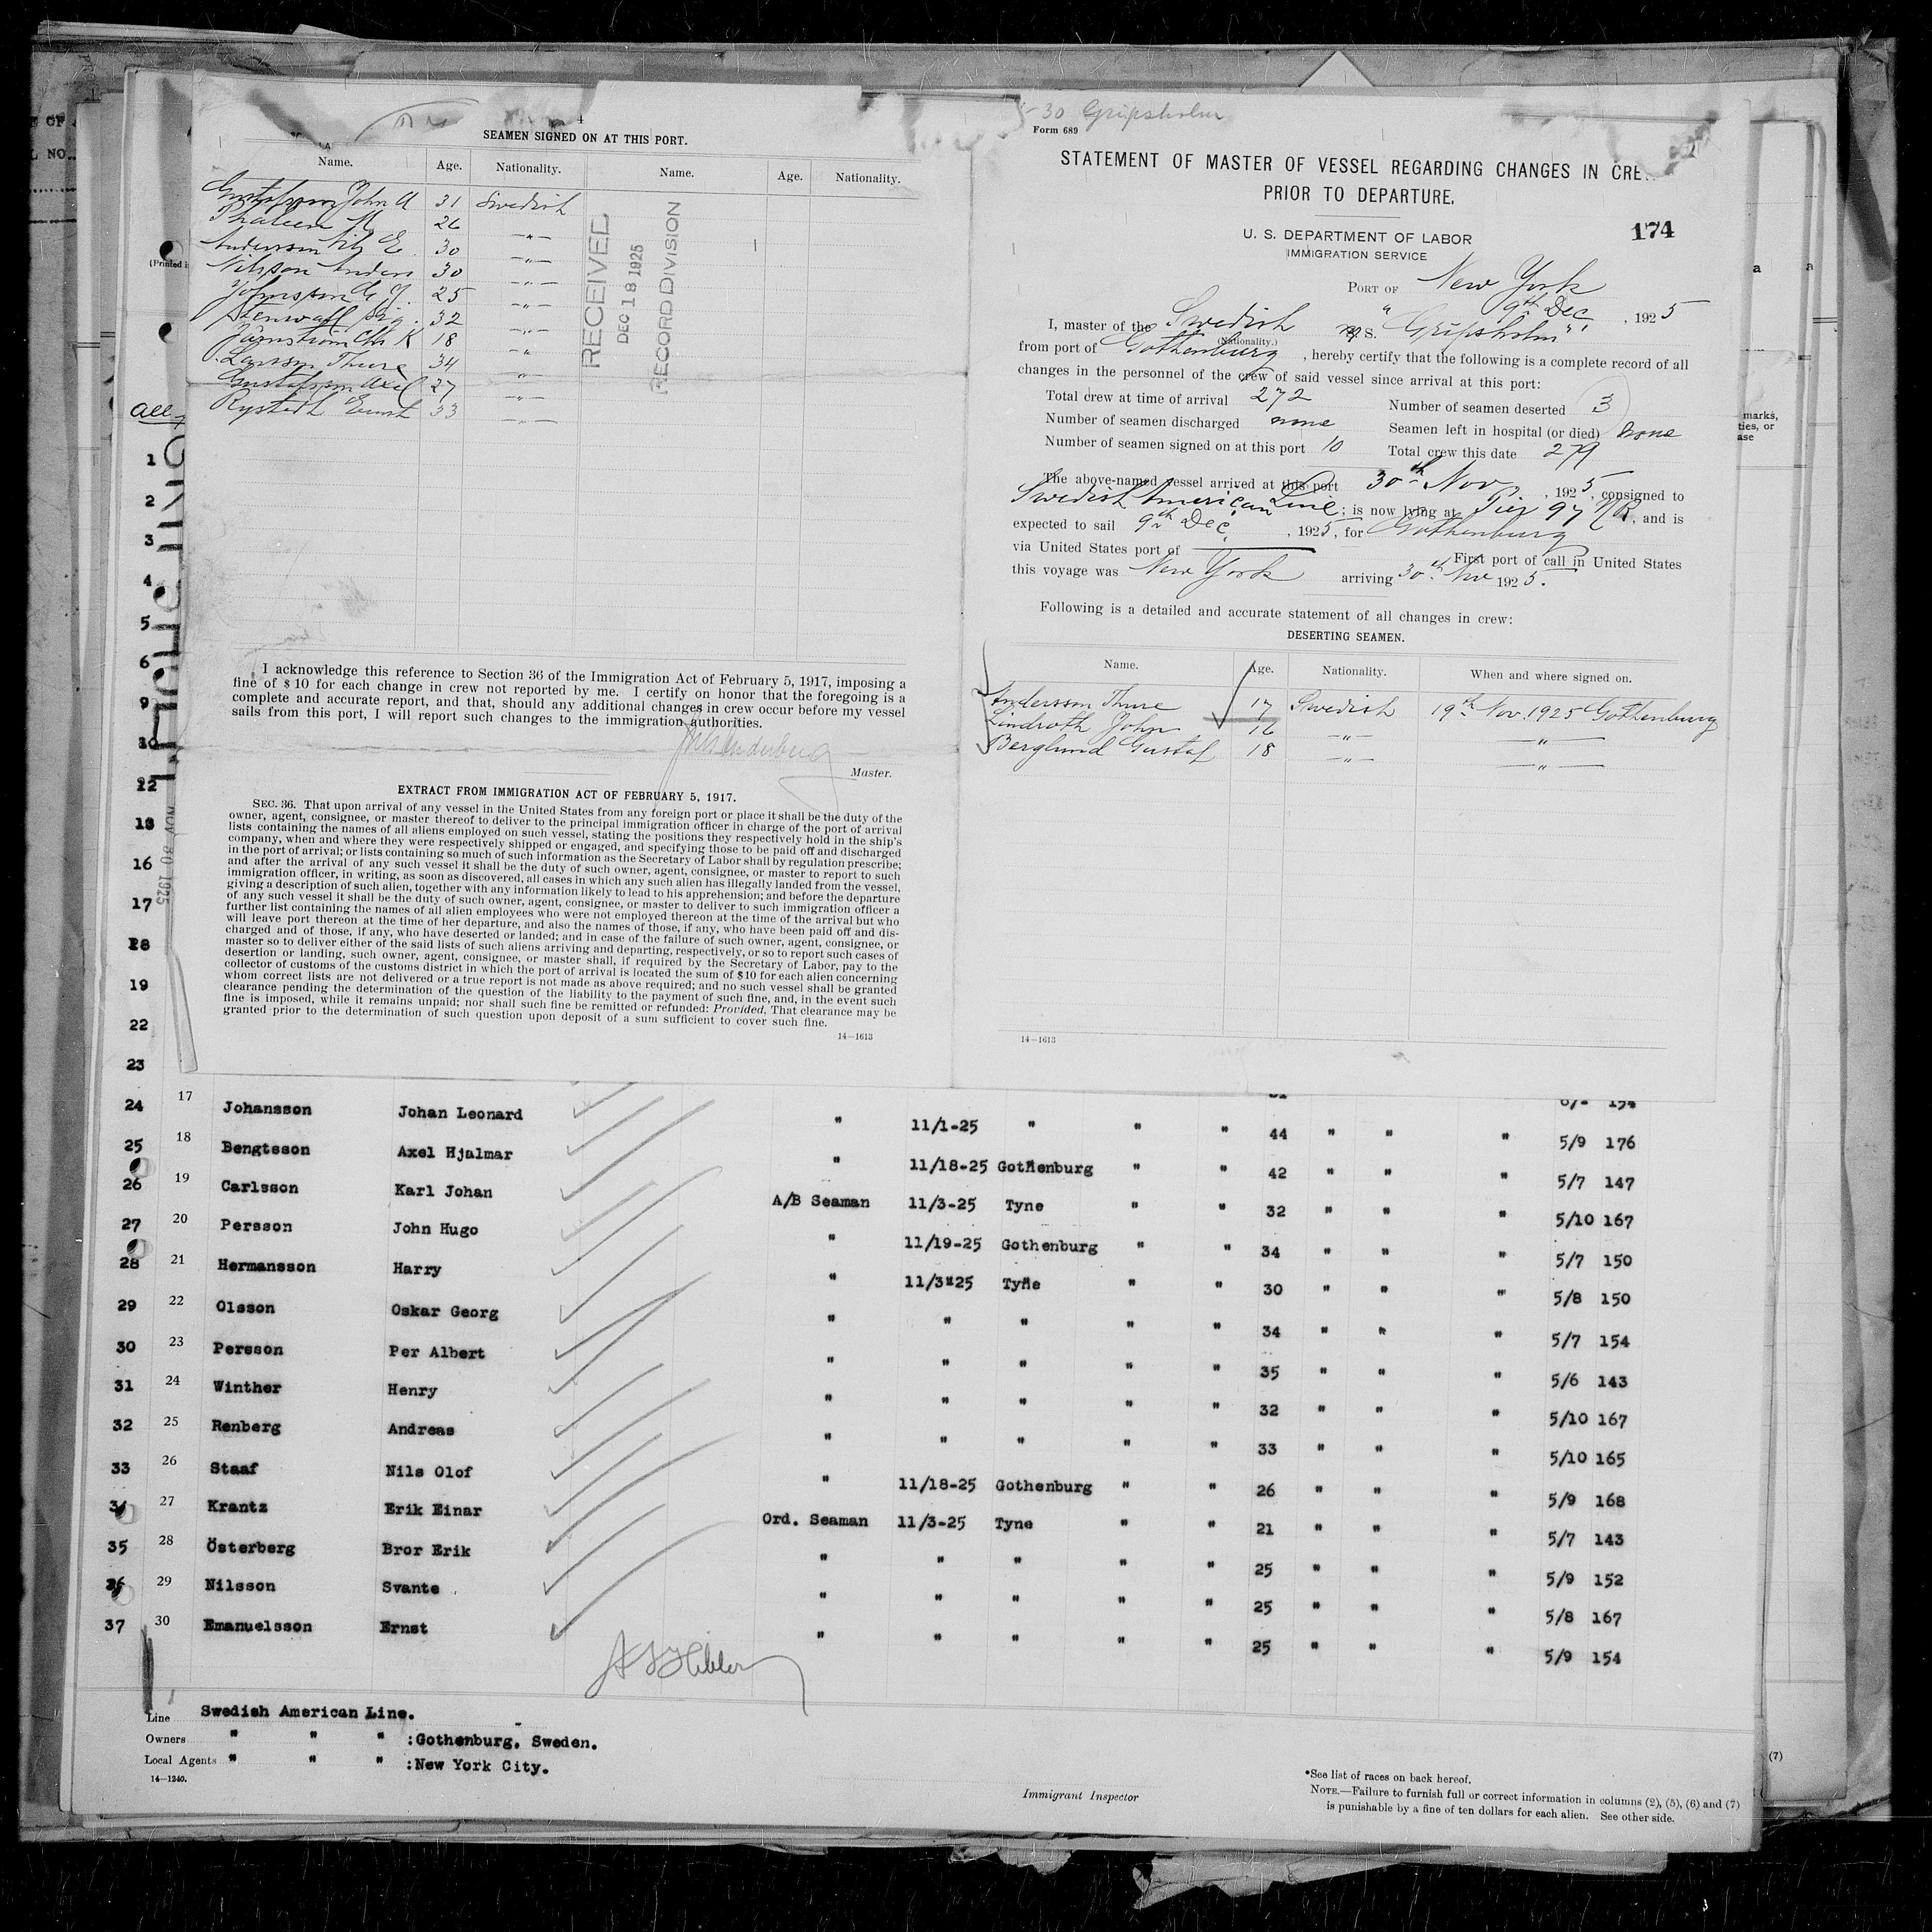 4
SEAMEN SIGNED ON AT THIS PORT.
Name. Age. Nationality. Name. Age. Nationality.
Gustafsson John A 31 Swedish
26 -"-
Andersson Nils E. 30 -"-
Nilsson Anders 30 -"-
Johnsson G. 25 -"-
Stenwall Sig. 32 -"-
K 18 -"-
Larsson Thure 34 -"-
Gustafsson Axel 27 -"-
Rystedt Ernst 33 -"-
RECEIVED
DEC 18 1925
RECORD DIVISION
I acknowledge this reference to Section 36 of the Immigration Act of February 5, 1917, imposing a
fine of $10 for each change in crew not reported by me. I certify on honor that the foregoing is a
complete and accurate report, and that, should any additional changes in crew occur before my vessel
sails from this port, I will report such changes to the immigration authorities.
Master.
EXTRACT FROM IMMIGRATION ACT OF FEBRUARY 5, 1917.
SEC. 36. That upon arrival of any vessel in the United States from any foreign port or place it shall be the duty of the
owner, agent, consignee, or master thereof to deliver to the principal immigration officer in charge of the port of arrival
lists containing the names of all aliens employed on such vessel, stating the positions they respectively hold in the ship's
company, when and where they were respectively shipped or engaged, and specifying those to be paid off and discharged
in the port of arrival; or lists containing so much of such information as the Secretary of Labor shall by regulation prescribe;
and after the arrival of any such vessel it shall be the duty of such owner, agent, consignee, or master to report to such
immigration officer, in writing, as soon as discovered, all cases in which any such alien has illegally landed from the vessel,
giving a description of such alien, together with any information likely to lead to his apprehension; and before the departure
of any such vessel it shall be the duty of such owner, agent, consignee, or master to deliver to such immigration officer a
further list containing the names of all alien employees who were not employed thereon at the time of the arrival but who
will leave port thereon at the time of her departure, and also the names of those, if any, who have been paid off and dis-
charged and of those, if any, who have deserted or landed; and in case of the failure of such owner, agent, consignee, or
master so to deliver either of the said lists of such aliens arriving and departing, respectively, or so to report such cases of
desertion or landing, such owner, agent, consignee, or master shall, if required by the Secretary of Labor, pay to the
collector of customs of the customs district in which the port of arrival is located the sum of $10 for each alien concerning
whom correct lists are not delivered or a true report is not made as above required; and no such vessel shall be granted
clearance pending the determination of the question of the liability to the payment of such fine, and, in the event such
fine is imposed, while it remains unpaid; nor shall such fine be remitted or refunded: Provided, That clearance may be
granted prior to the determination of such question upon deposit of a sum sufficient to cover such fine.
14—1613
30 Gripsholm
Form 689
STATEMENT OF MASTER OF VESSEL REGARDING CHANGES IN CRE
PRIOR TO DEPARTURE.
174
U. S. DEPARTMENT OF LABOR
IMMIGRATION SERVICE
PORT OF New York
9th Dec., 1925
I, master of the Swedish M. S. "Gripsholm"
(Nationality.)
from port of Gothenburg, hereby certify that the following is a complete record of all
changes in the personnel of the crew of said vessel since arrival at this port:
Total crew at time of arrival 272 Number of seamen deserted 3
Number of seamen discharged none Seamen left in hospital (or died) none
Number of seamen signed on at this port 10 Total crew this date 279
The above-named vessel arrived at this port 30th Nov., 1925, consigned to
Swedish American Line; is now lying at Pier 97 NR, and is
expected to sail 9th Dec., 1925, for Gothenburg
via United States port of First port of call in United States
this voyage was New York arriving 30th Nov 1925.
Following is a detailed and accurate statement of all changes in crew:
DESERTING SEAMEN.
Name. Age. Nationality. When and where signed on.
Andersson Thure 17 Swedish 19th Nov. 1925 Gothenburg
Lindroth John 16 -"- -"-
Berglund Gustaf 18 -"- -"-
14—1613
(Printed i
marks,
ties, or
ase
NOV 30 1925
1
2
3
4
5
6
9
10
12
13
16
17
18
19
22
23
24 17 Johansson Johan Leonard " 11/1-25 " " " 44 " " " 5/9 176
25 18 Bengtsson Axel Hjalmar " 11/18-25 Gothenburg " " 42 " " " 5/7 147
26 19 Carlsson Karl Johan A/B Seaman 11/3-25 Tyne " " 32 " " " 5/10 167
27 20 Persson John Hugo " 11/19-25 Gothenburg " " 34 " " " 5/7 150
28 21 Hermansson Harry " 11/3"25 Tyne " " 30 " " " 5/8 150
29 22 Olsson Oskar Georg " " " " " 34 " " " 5/7 154
30 23 Persson Per Albert " " " " " 35 " " " 5/6 143
31 24 Winther Henry " " " " " 32 " " " 5/10 167
32 25 Renberg Andreas " " " " " 33 " " " 5/10 165
33 26 Staaf Nils Olof " 11/18-25 Gothenburg " " 26 " " " 5/9 168
34 27 Krantz Erik Einar Ord. Seaman 11/3-25 Tyne " " 21 " " " 5/7 143
35 28 Österberg Bror Erik " " " " " 25 " " " 5/9 152
36 29 Nilsson Svante " " " " " 25 " " " 5/8 167
37 30 Emanuelsson Ernst " " " " " 25 " " " 5/9 154
Line Swedish American Line.
Owners " " " :Gothenburg, Sweden.
Local Agents " " " :New York City.
14—1240.
Immigrant Inspector
*See list of races on back hereof.
NOTE.—Failure to furnish full or correct information in columns (2), (5), (6) and (7)
is punishable by a fine of ten dollars for each alien. See other side.
(7)